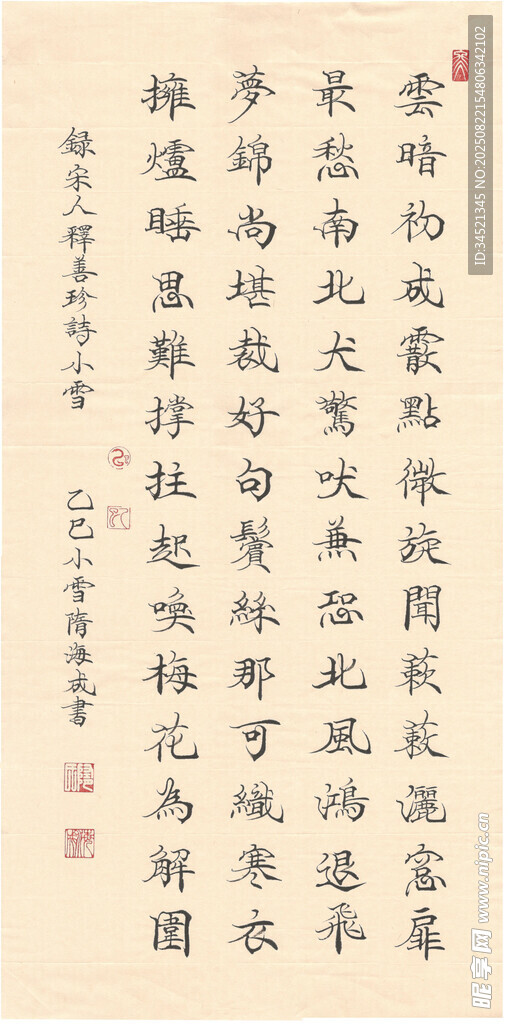 雲暗初成霰點微旋聞蔌蔌灑窓扉
最愁南北犬驚吠兼恐北風鴻退飛
夢錦尚堪裁好句鬢絲那可織寒衣
擁爐睡思難撐拄起喚梅花為解圍
録宋人釋善珍詩小雪
乙巳小雪隋海成書
ID:34521345 NO:20250822154806342102
昵享网 www.nipic.cn